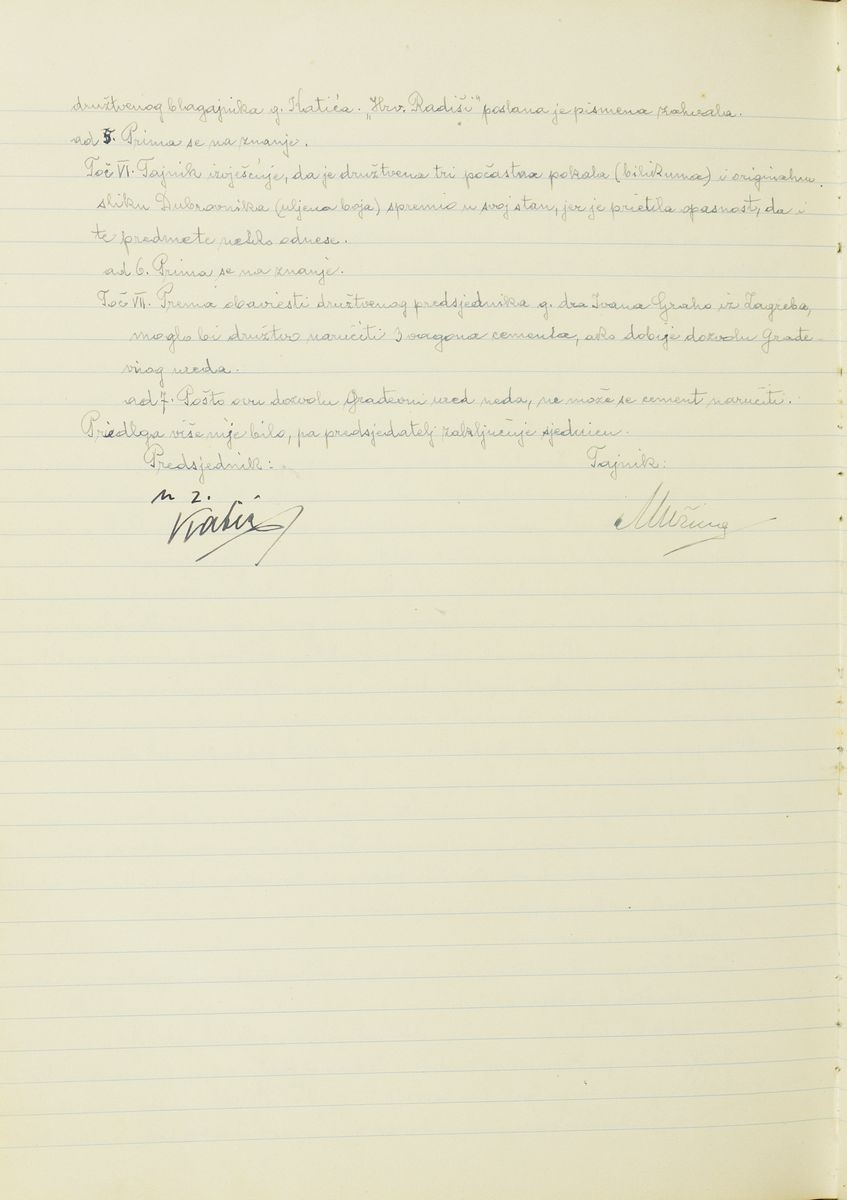 družtvenog blagajnika g. Katića. „Hrv. Radiši" poslana je pismena zahvala.
ad 5. Prima se na znanje.
Toč VI. Tajnik izvješćuje, da je družtvena tri počastna pokala (bilikuma) i originalnu
sliku Dubrovnika (uljena boja) spremio u svoj stan, jer je prietila opasnost, da i
te predmete netko odnese.
ad 6. Prima se na znanje.
Toč VII. Prema obaviesti družtvenog predsjednika g. dra Ivana Graho iz Zagreba,
moglo bi družtvo naručiti 3 vagona cementa, ako dobije dozvolu Građe-
vnog ureda.
ad 7. Pošto ovu dozvolu Građevni ured neda, ne može se cement naručiti.
Priedloga više nije bilo, pa predsjedatelj zaključuje sjednicu.
Predsjednik: Tajnik:
Katić